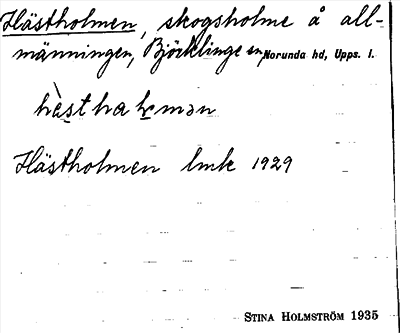 Hästholmen, skogsholme å all-
männingen, Björklinge sn, Norunda hd, Upps. l.
Hästholmen lmk 1929
STINA HOLMSTRÖM 1935